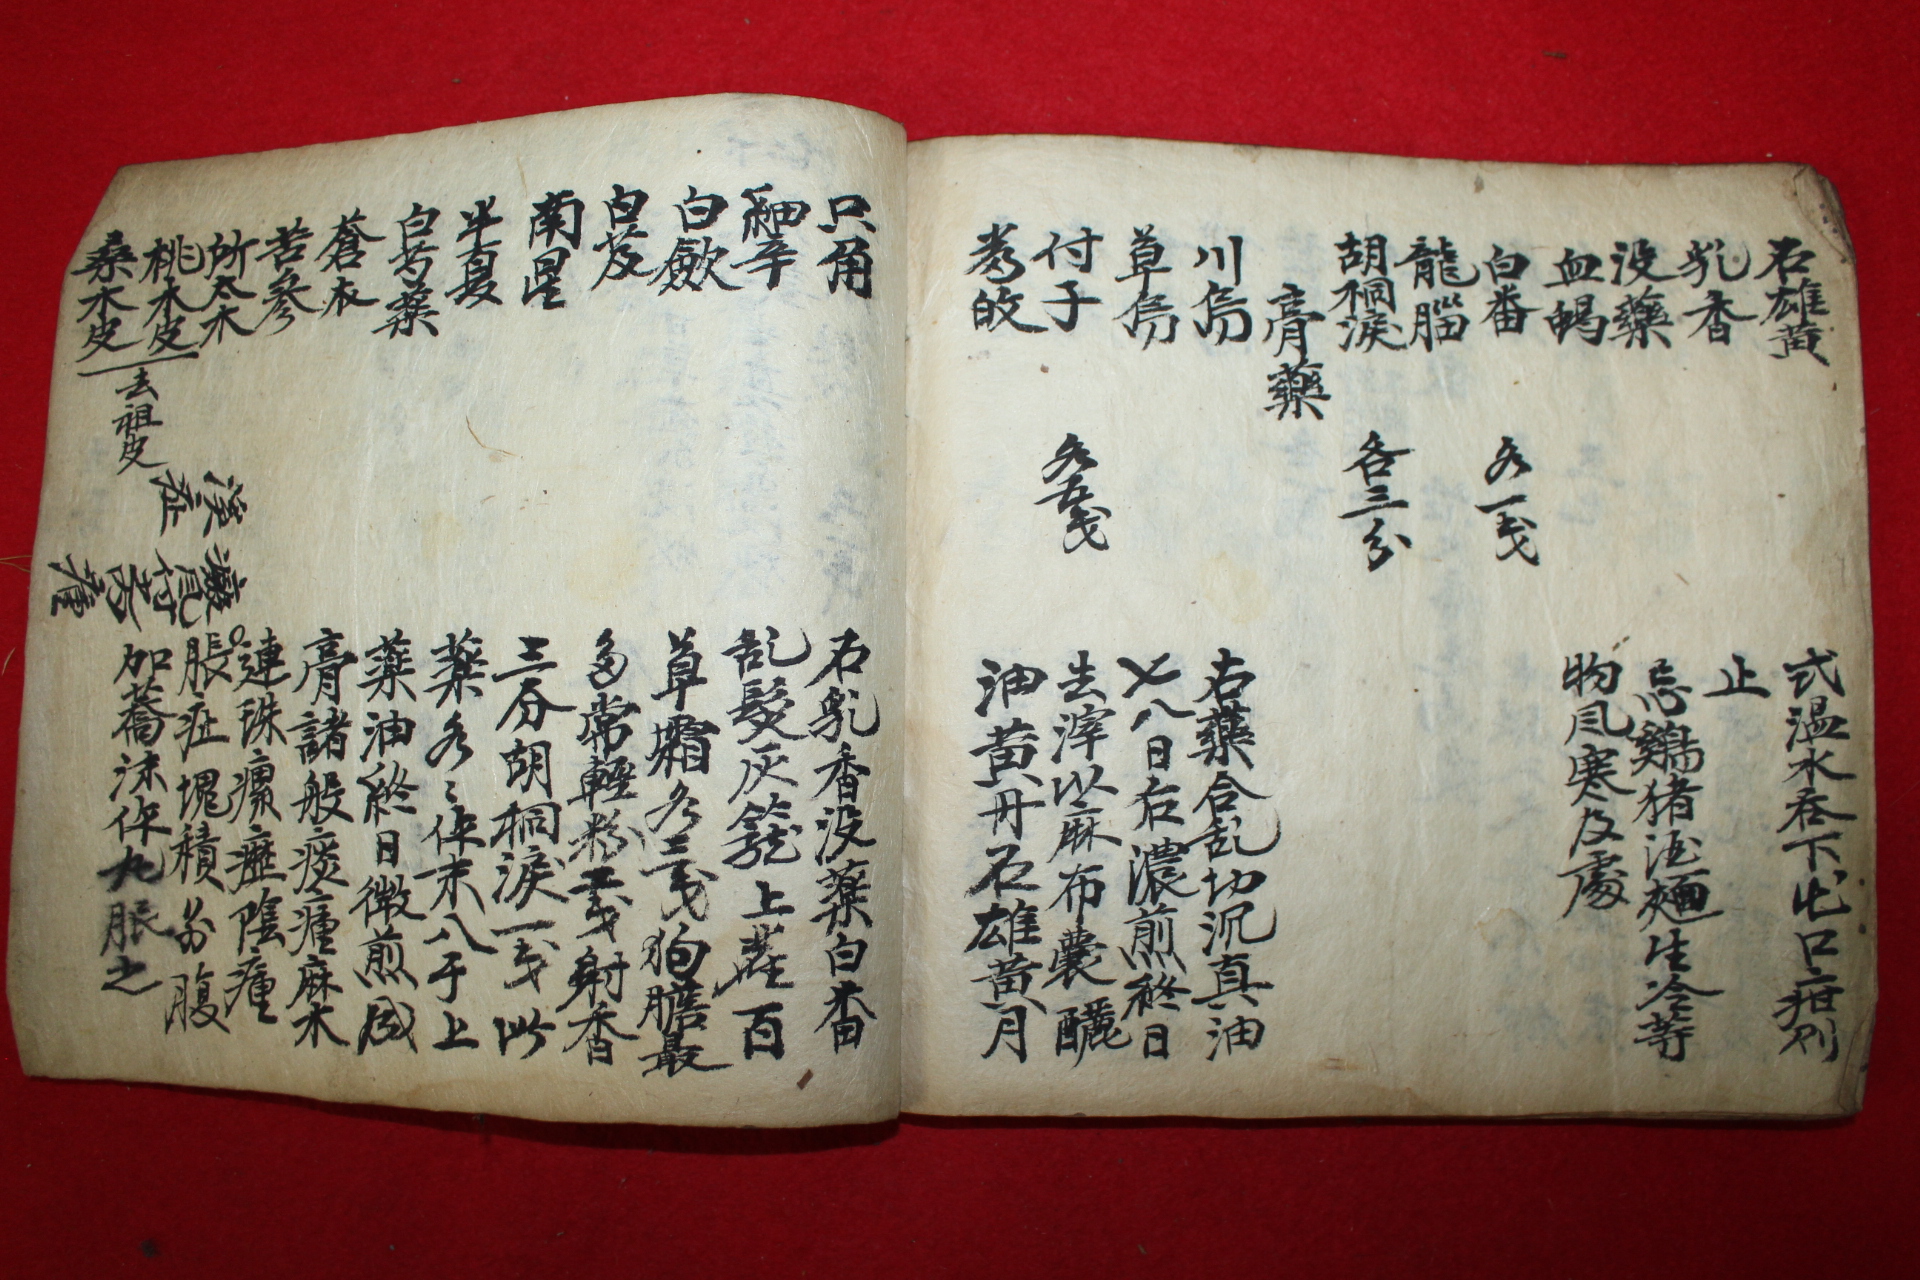 石雄黃
乳香
没藥
血蝎
白畨 各一戔
龍腦
胡桐淚 各三分
膏藥
川烏
草烏
付子 各五戔
式温水呑下此口疳則
止
忌鷄猪酒麵生冷等
物風寒及處
右藥合乱切沉真油
七八日右濃煎終日
去滓以麻布囊釃
油黃丹石雄黃月
只角
細辛
白歛
白芨
南星
半夏
白芍藥
蒼朮
苦參
桃木皮
桑木皮
去祖皮
石乳香没藥白畨
乱髮灰 上 百
草霜各三戔狗膽最
多常輕粉五戔射香
三分胡桐淚一戔此
藥各各作末八于上
藥油終日微煎成
膏諸般痰瘇麻木
連珠瘰癧陰瘇
脹症塊積 腹
加蕎沫作丸服之